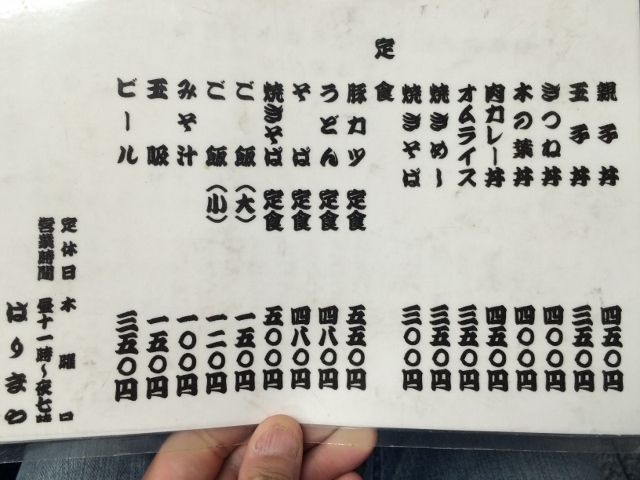 親子丼 四五〇円
玉子丼 三五〇円
きつね丼 四〇〇円
木の葉丼 四〇〇円
肉カレー丼 四五〇円
オムライス 三五〇円
焼きめし 三五〇円
焼きそば 三〇〇円
定食
豚カツ定食 五五〇円
うどん定食 四八〇円
そば定食 四八〇円
焼きそば定食 五〇〇円
ご飯(大) 一五〇円
ご飯(小) 一二〇円
みそ汁 一〇〇円
玉吸 一五〇円
ビール 三五〇円
定休日 木曜日
営業時間 昼十一時〜夜七時
はりまや